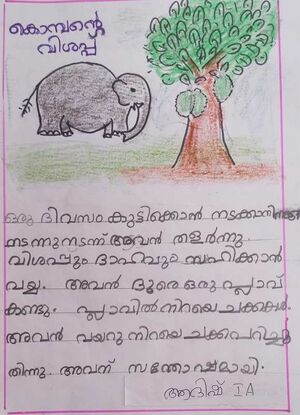 കൊമ്പന്റെ
വിശപ്പ്
ഒരു ദിവസം കുട്ടിക്കൊമ്പൻ നടക്കാനിറങ്ങി
നടന്നു നടന്ന് അവൻ തളർന്നു.
വിശപ്പും ദാഹവും സഹിക്കാൻ
വയ്യ. അവൻ ദൂരെ ഒരു പ്ലാവ്
കണ്ടു. പ്ലാവിൽ നിറയെ ചക്കകൾ.
അവൻ വയറു നിറയെ ചക്ക പറിച്ചു
തിന്നു. അവന് സന്തോഷമായി.
ആദിഷ് I A